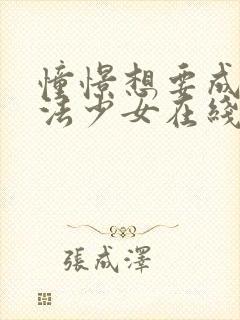 憧憬想要成
法少女在綫
張成澤